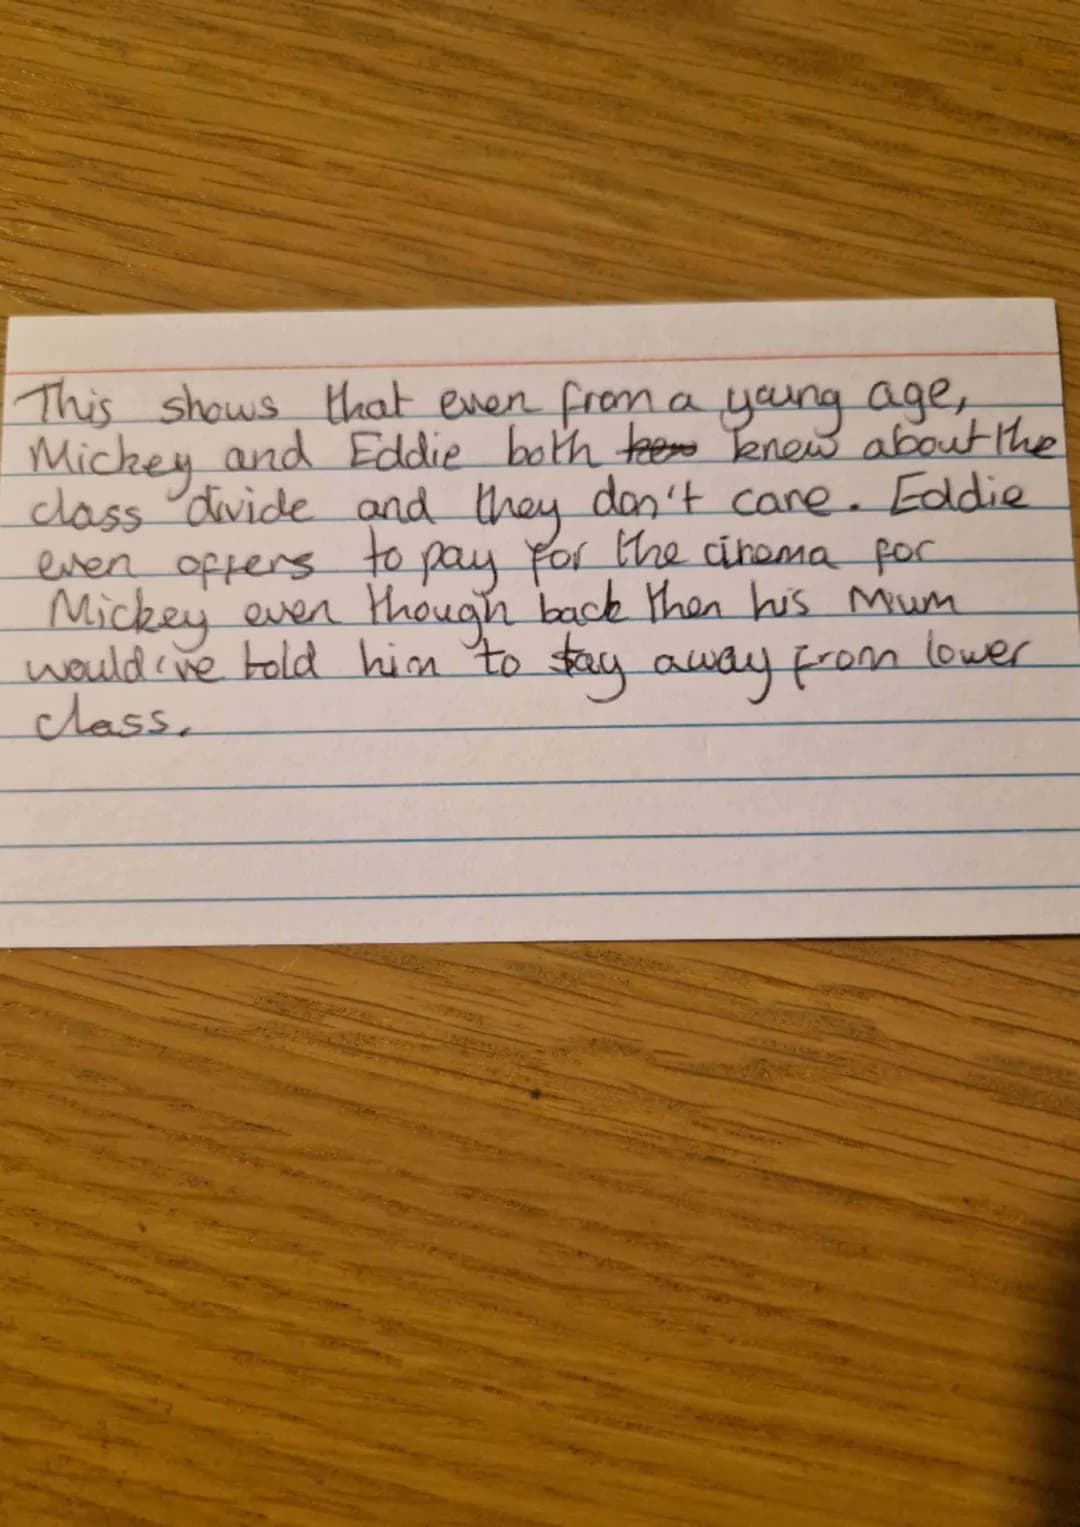 This shows that even from a young age,
Mickey and Eddie both knew about the
class divide and they don't care. Eddie
even offers to pay for the cinema for
Mickey even though back then his Mum
would've told him to stay away from lower
class.